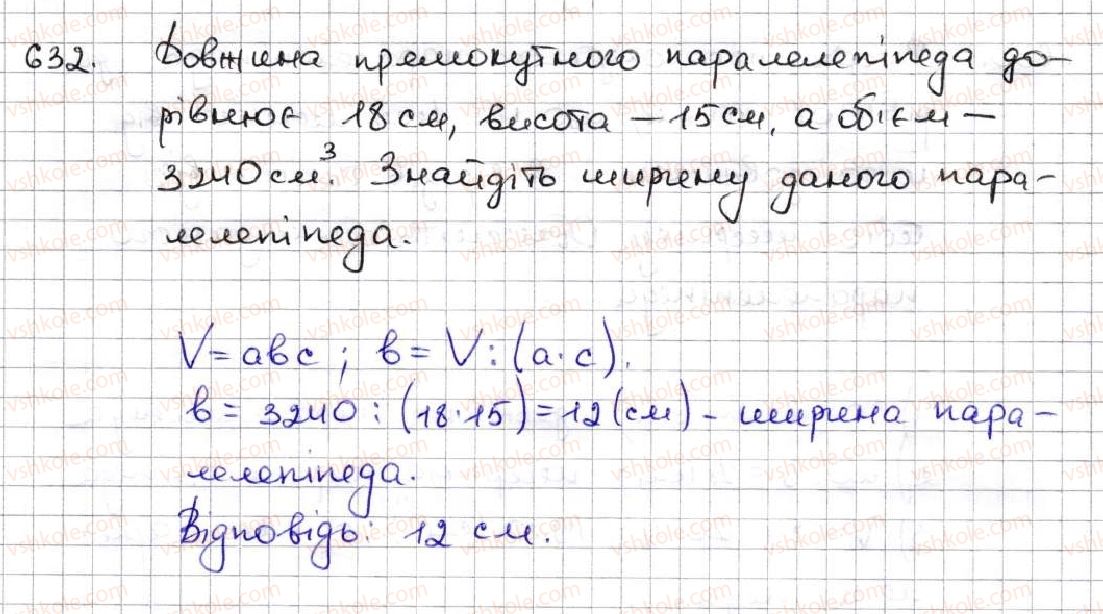 632. Довжина прямокутного паралелепіпеда до-
рівнює 18 см, висота – 15 см, а об'єм –
3240 см³. Знайдіть ширину даного пара-
лелепіпеда.
V = abc ; b = V : (a · c).
b = 3240 : (18 · 15) = 12 (см) – ширина пара-
лелепіпеда.
Відповідь: 12 см.